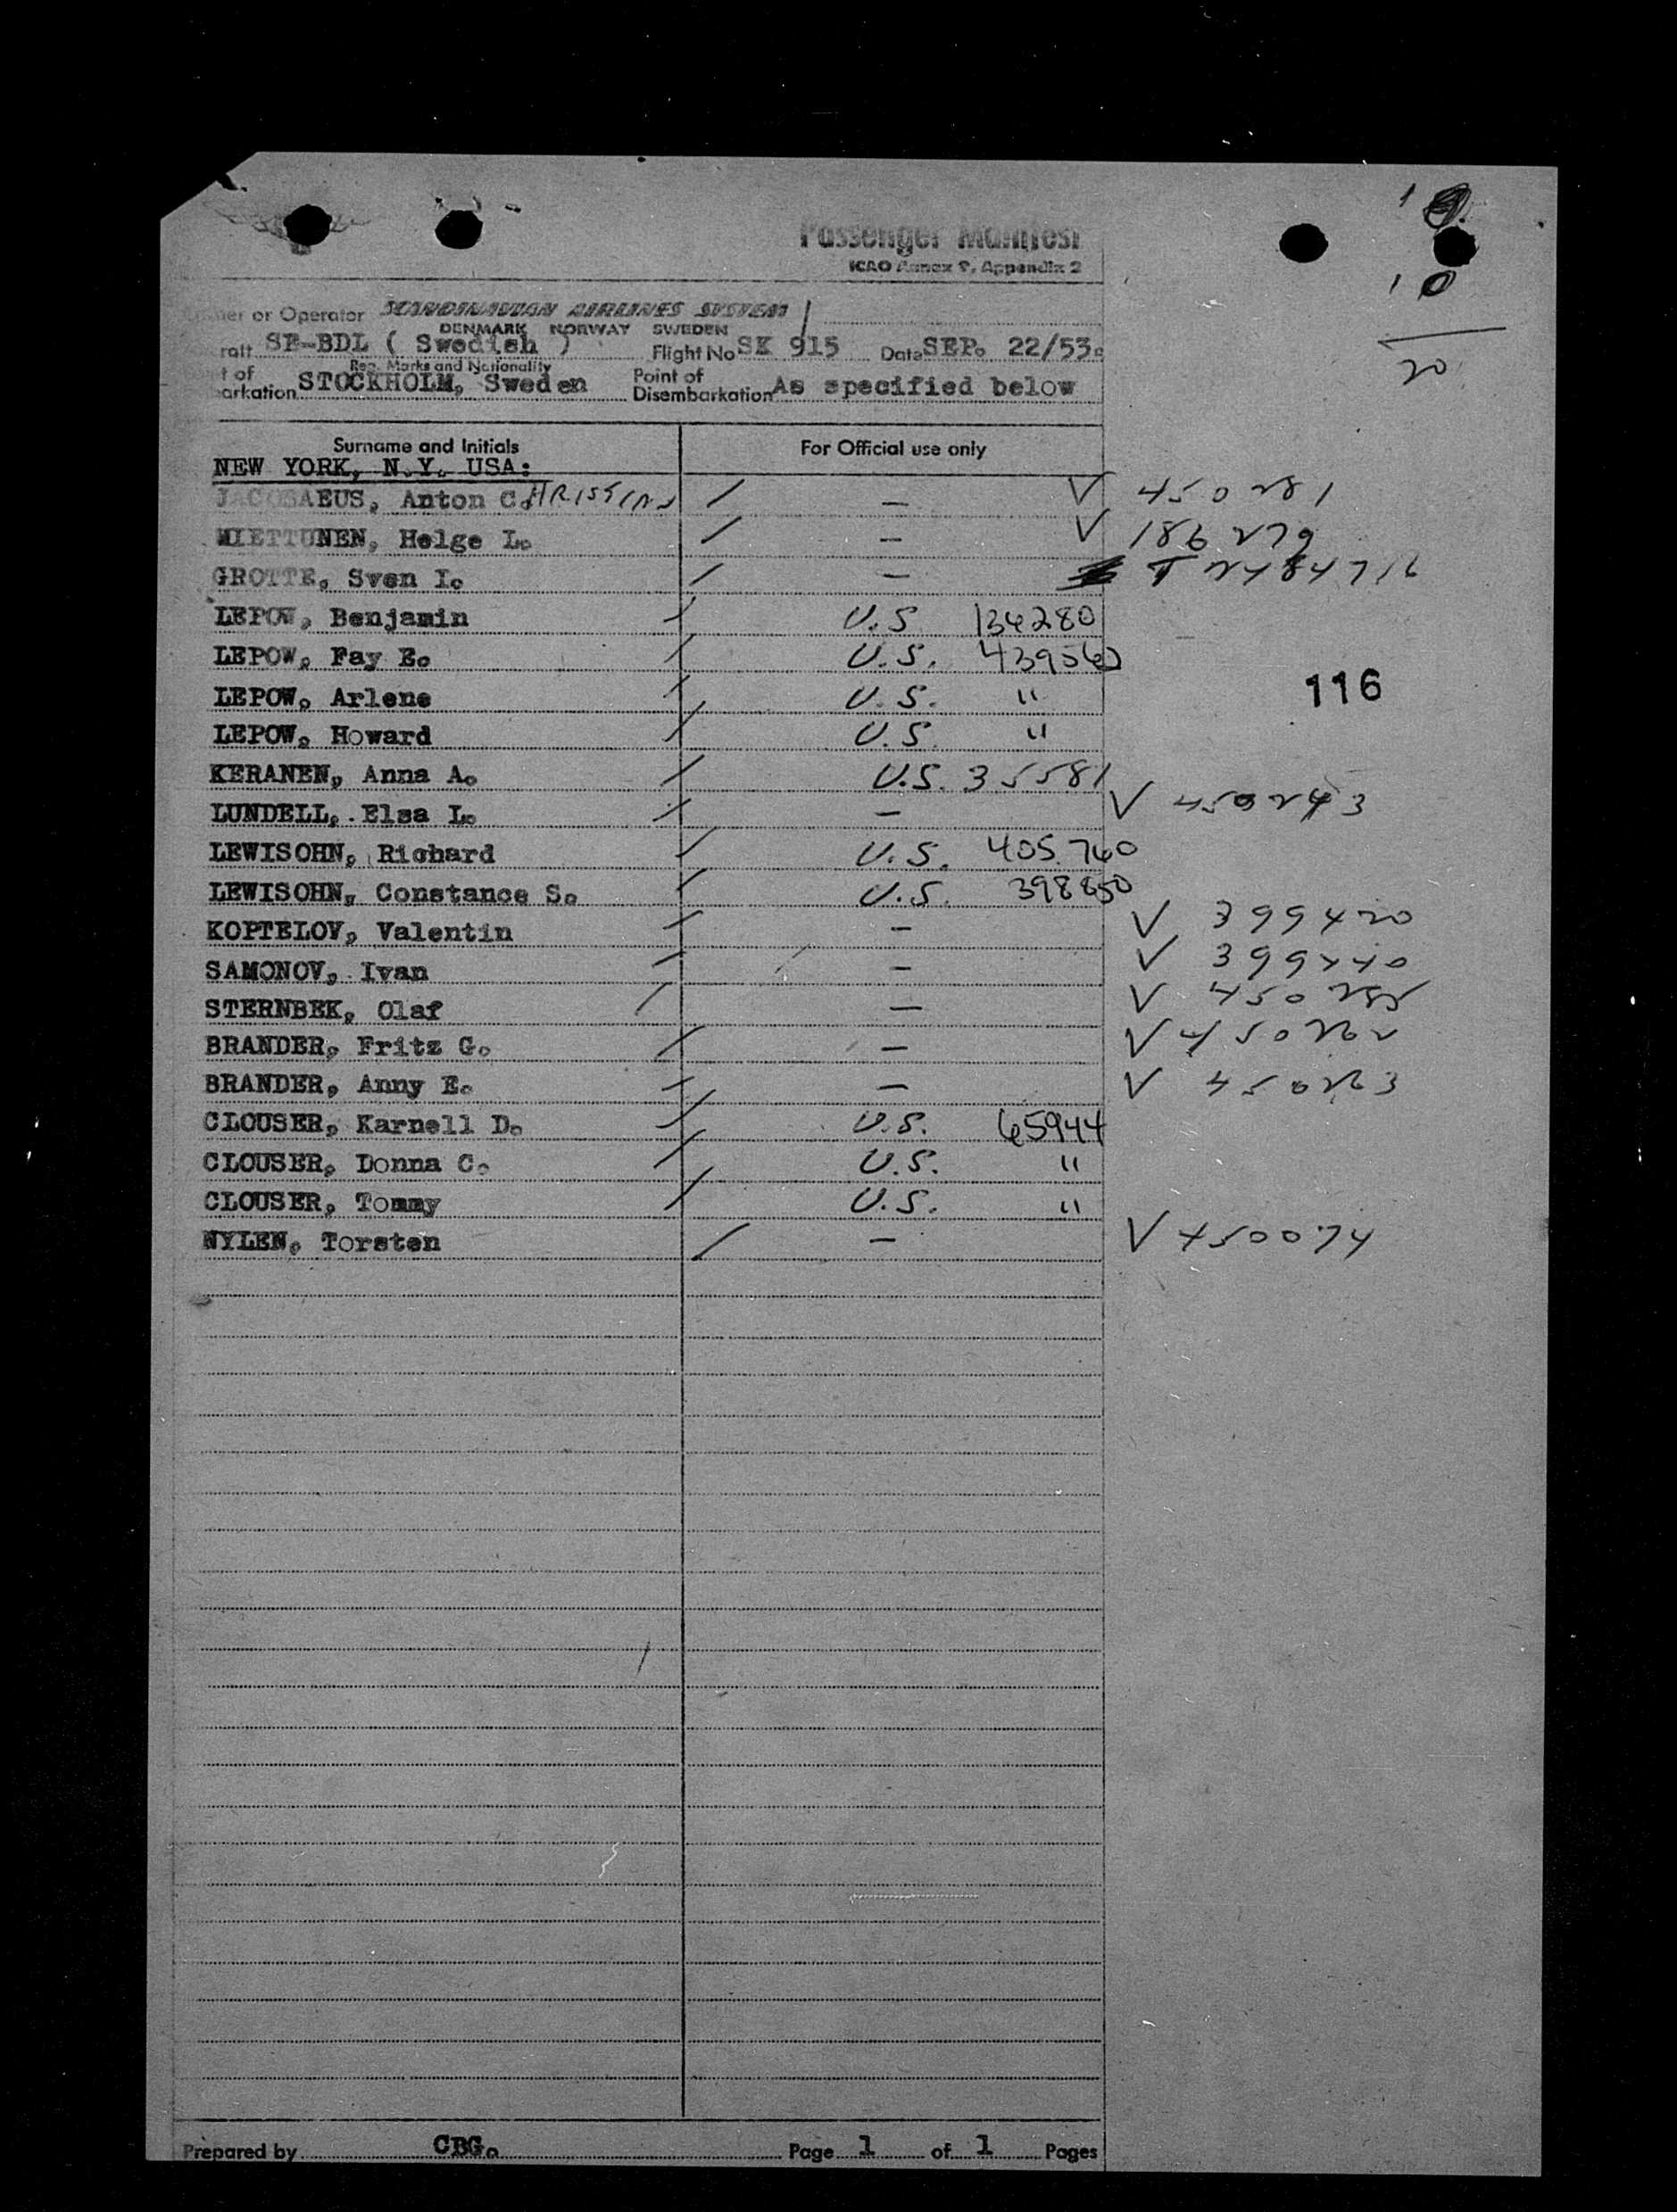 10
10
20
Passenger Manifest
ICAO Annex 9, Appendix 2
ner or Operator SCANDINAVIAN AIRLINES SYSTEM
DENMARK NORWAY SWEDEN
raft SE-BDL ( Swedish ) Flight No SK 915 Date SEP. 22/53.
Reg. Marks and Nationality
t of arkation STOCKHOLM, Sweden Point of Disembarkation As specified below
Surname and Initials For Official use only
NEW YORK, N.Y. USA:
JACOBAEUS, Anton C. / — V 450281
MIETTUNEN, Helge L. / — V 186279
GROTTE, Sven I. / — T 2484716
LEPOW, Benjamin / U.S. 134280
LEPOW, Fay E. / U.S. 439560
LEPOW, Arlene / U.S. "
116
LEPOW, Howard / U.S. "
KERANEN, Anna A. / U.S. 35581
LUNDELL, Elsa L. / — V 450243
LEWISOHN, Richard / U.S. 405760
LEWISOHN, Constance S. / U.S. 398850
KOPTELOV, Valentin / — V 399420
SAMONOV, Ivan / — V 399440
STERNBEK, Olaf / — V 450285
BRANDER, Fritz G. / — V 450262
BRANDER, Anny E. / — V 450263
CLOUSER, Karnell D. / U.S. 65944
CLOUSER, Donna C. / U.S. "
CLOUSER, Tommy / U.S. "
NYLEN, Torsten / — V 450074
Prepared by CBG. Page 1 of 1 Pages